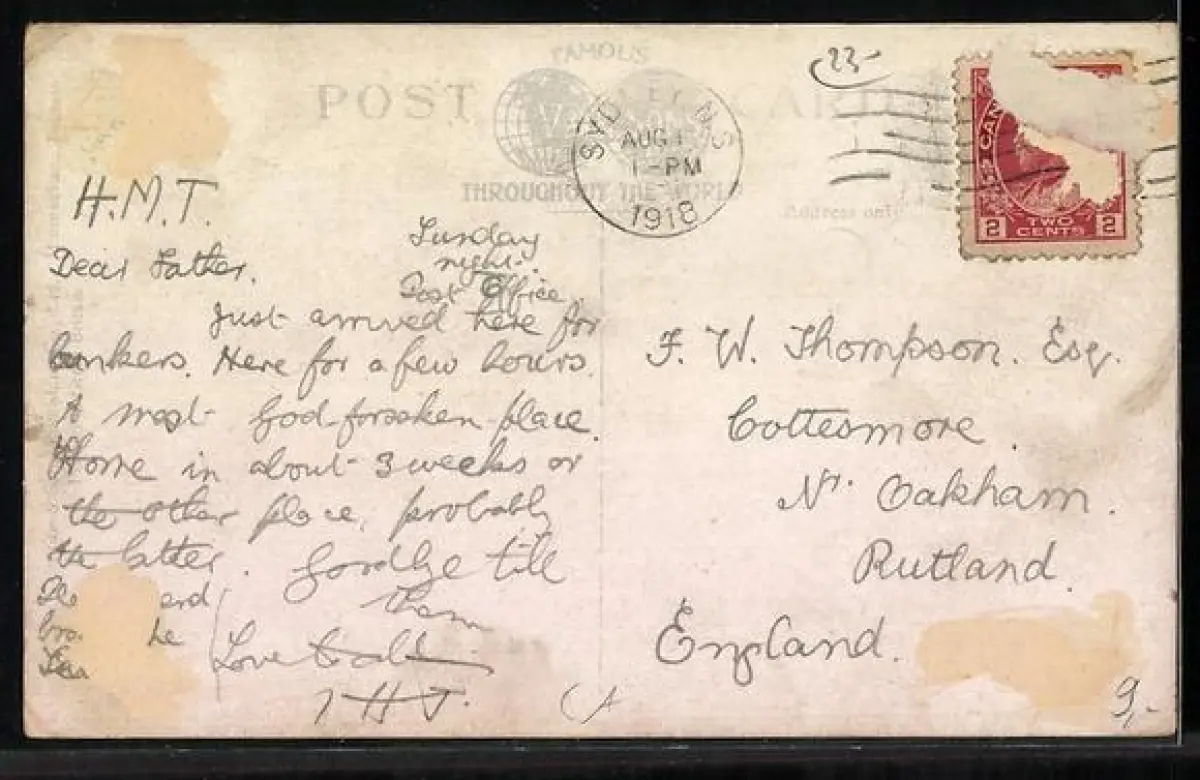 FAMOUS
POST CARD
THROUGHOUT THE WORLD
Address only
SYDNEY N.S.
AUG 1
1-PM
1918
23-
CAN
2 TWO CENTS 2
H.M.T.
Sunday
night.
Post Office
Dear Father.
Just arrived here for
bunkers. Here for a few hours.
A most God-forsaken place.
Home in about 3 weeks or
the other place, probably
the latter. Goodbye till
then
Love to all
F. W. Thompson. Esq.
Cottesmore.
Nr. Oakham.
Rutland.
England.
9,-